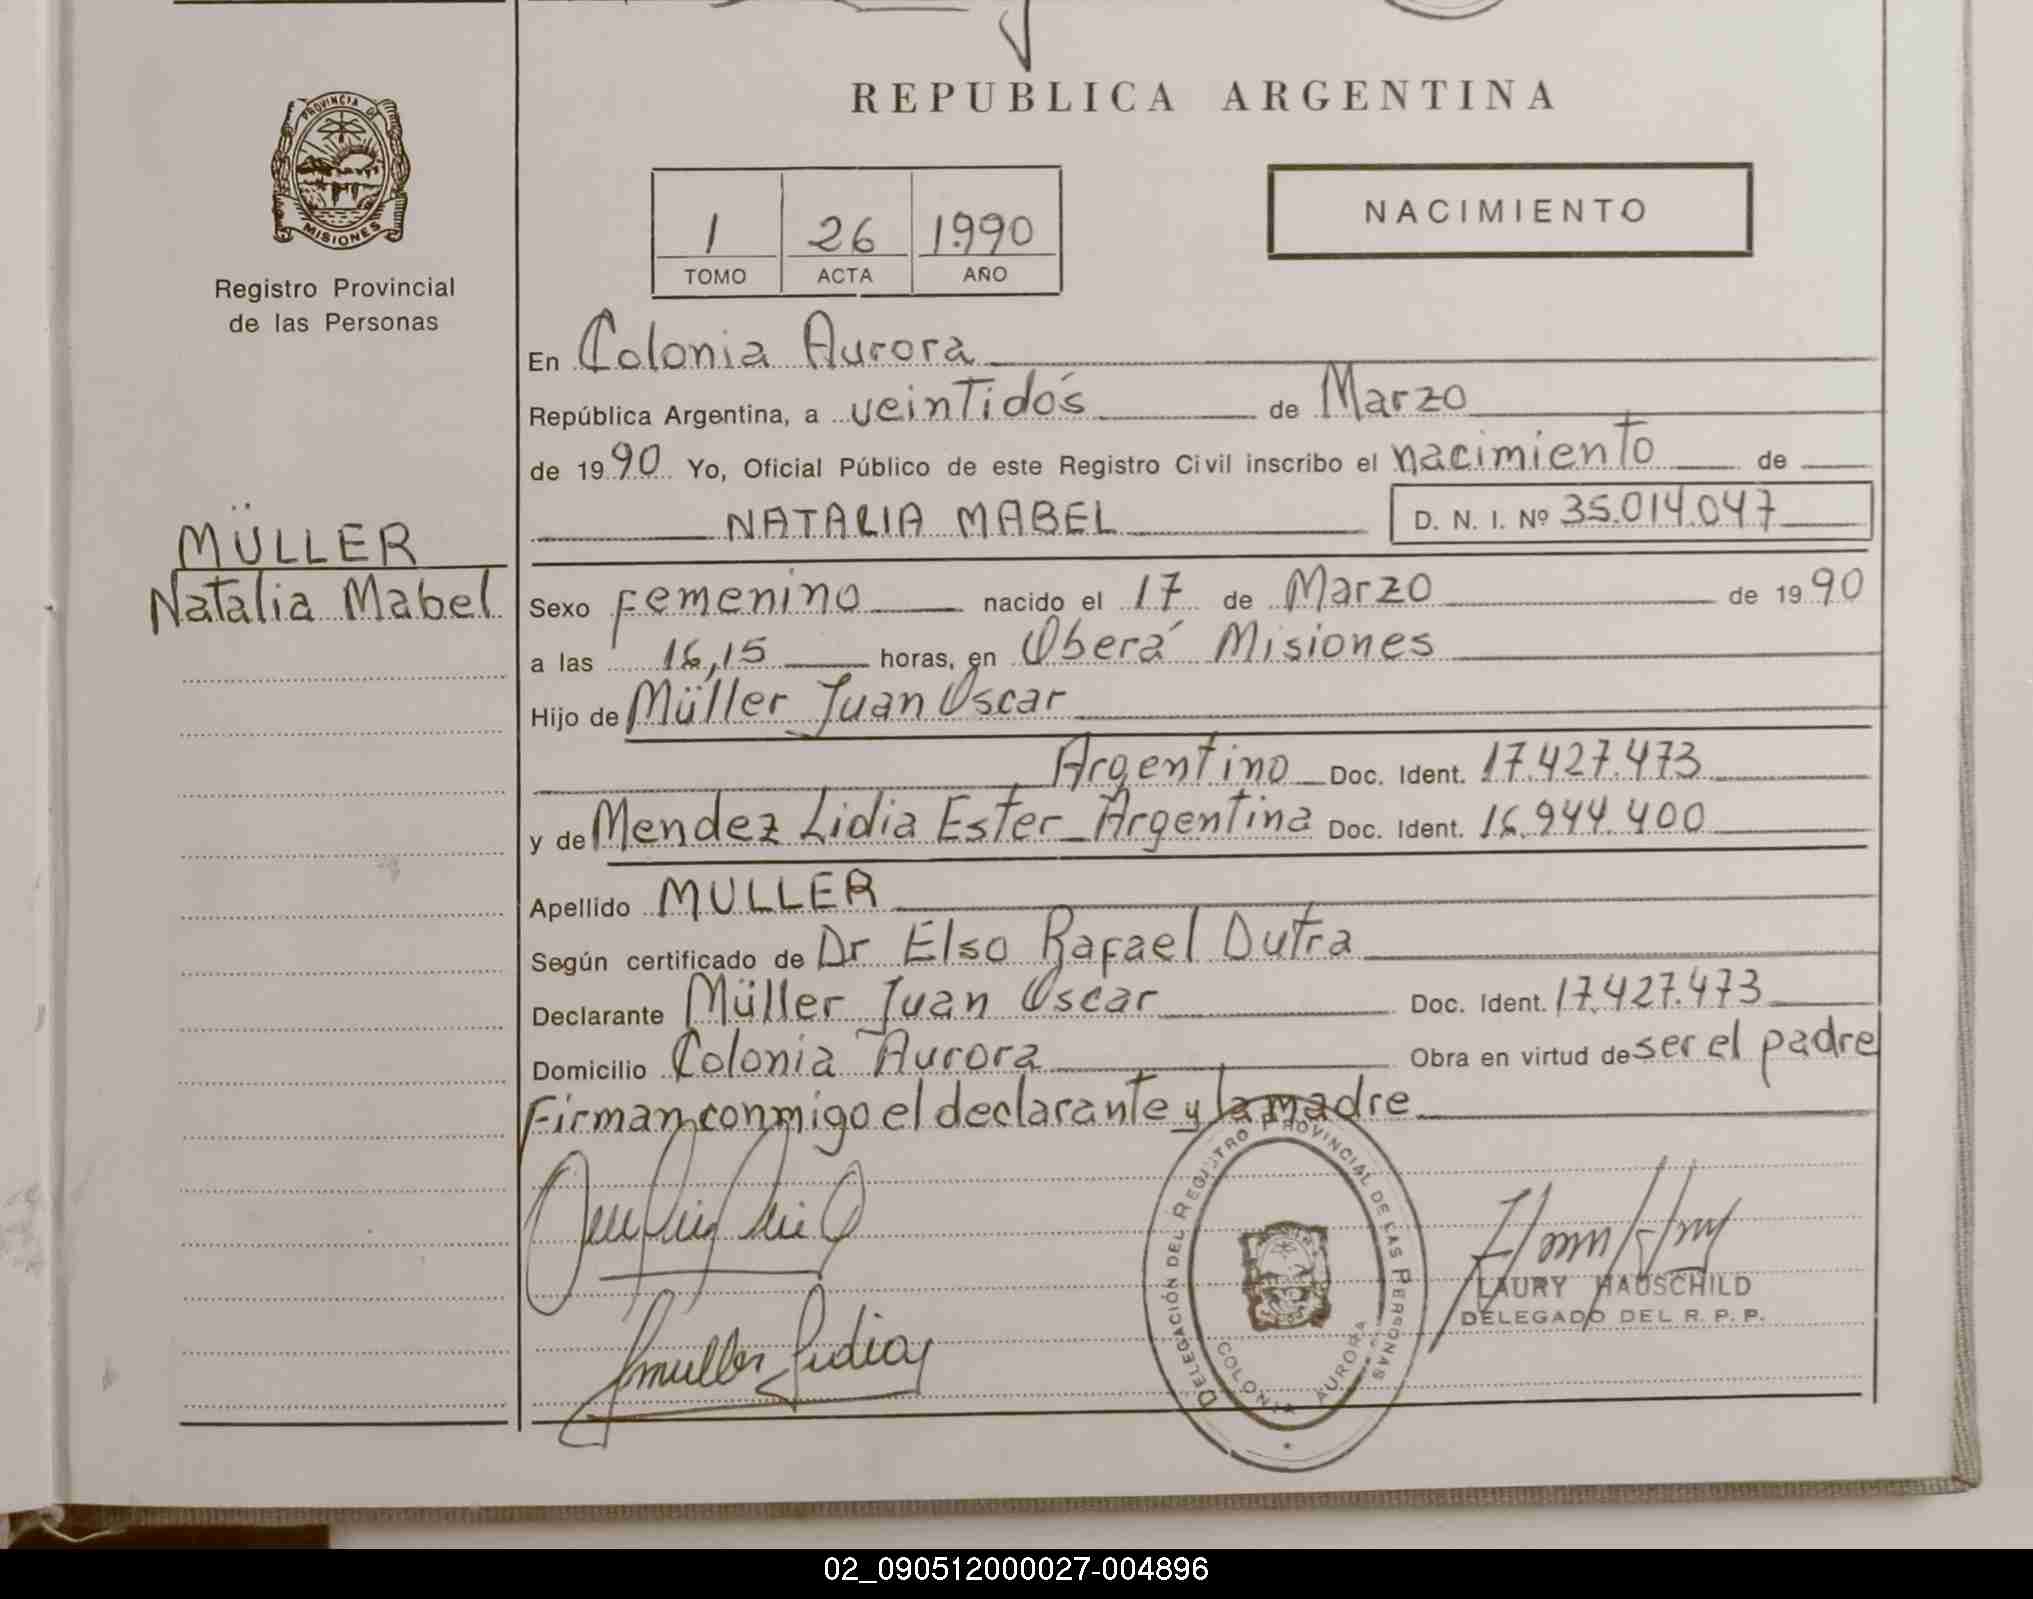 REPUBLICA ARGENTINA
PROVINCIA DE
MISIONES
Registro Provincial
de las Personas
1 26 1990
TOMO ACTA AÑO
NACIMIENTO
En Colonia Aurora
República Argentina, a veintidós de Marzo
de 1990 Yo, Oficial Público de este Registro Civil inscribo el nacimiento de
NATALIA MABEL D. N. I. Nº 35.014.047
MÜLLER
Natalia Mabel
Sexo Femenino nacido el 17 de Marzo de 1990
a las 16,15 horas, en Oberá Misiones
Hijo de Müller Juan Oscar
Argentino Doc. Ident. 17.427.473
y de Mendez Lidia Ester Argentina Doc. Ident. 16.944.400
Apellido MULLER
Según certificado de Dr Elso Rafael Dutra
Declarante Müller Juan Oscar Doc. Ident. 17.427.473
Domicilio Colonia Aurora Obra en virtud de ser el padre
Firman conmigo el declarante y la madre
DELEGACIÓN DEL REGISTRO PROVINCIAL DE LAS PERSONAS
COLONIA AURORA
LAURY HAUSCHILD
DELEGADO DEL R. P. P.
muller Lidia
02_090512000027-004896